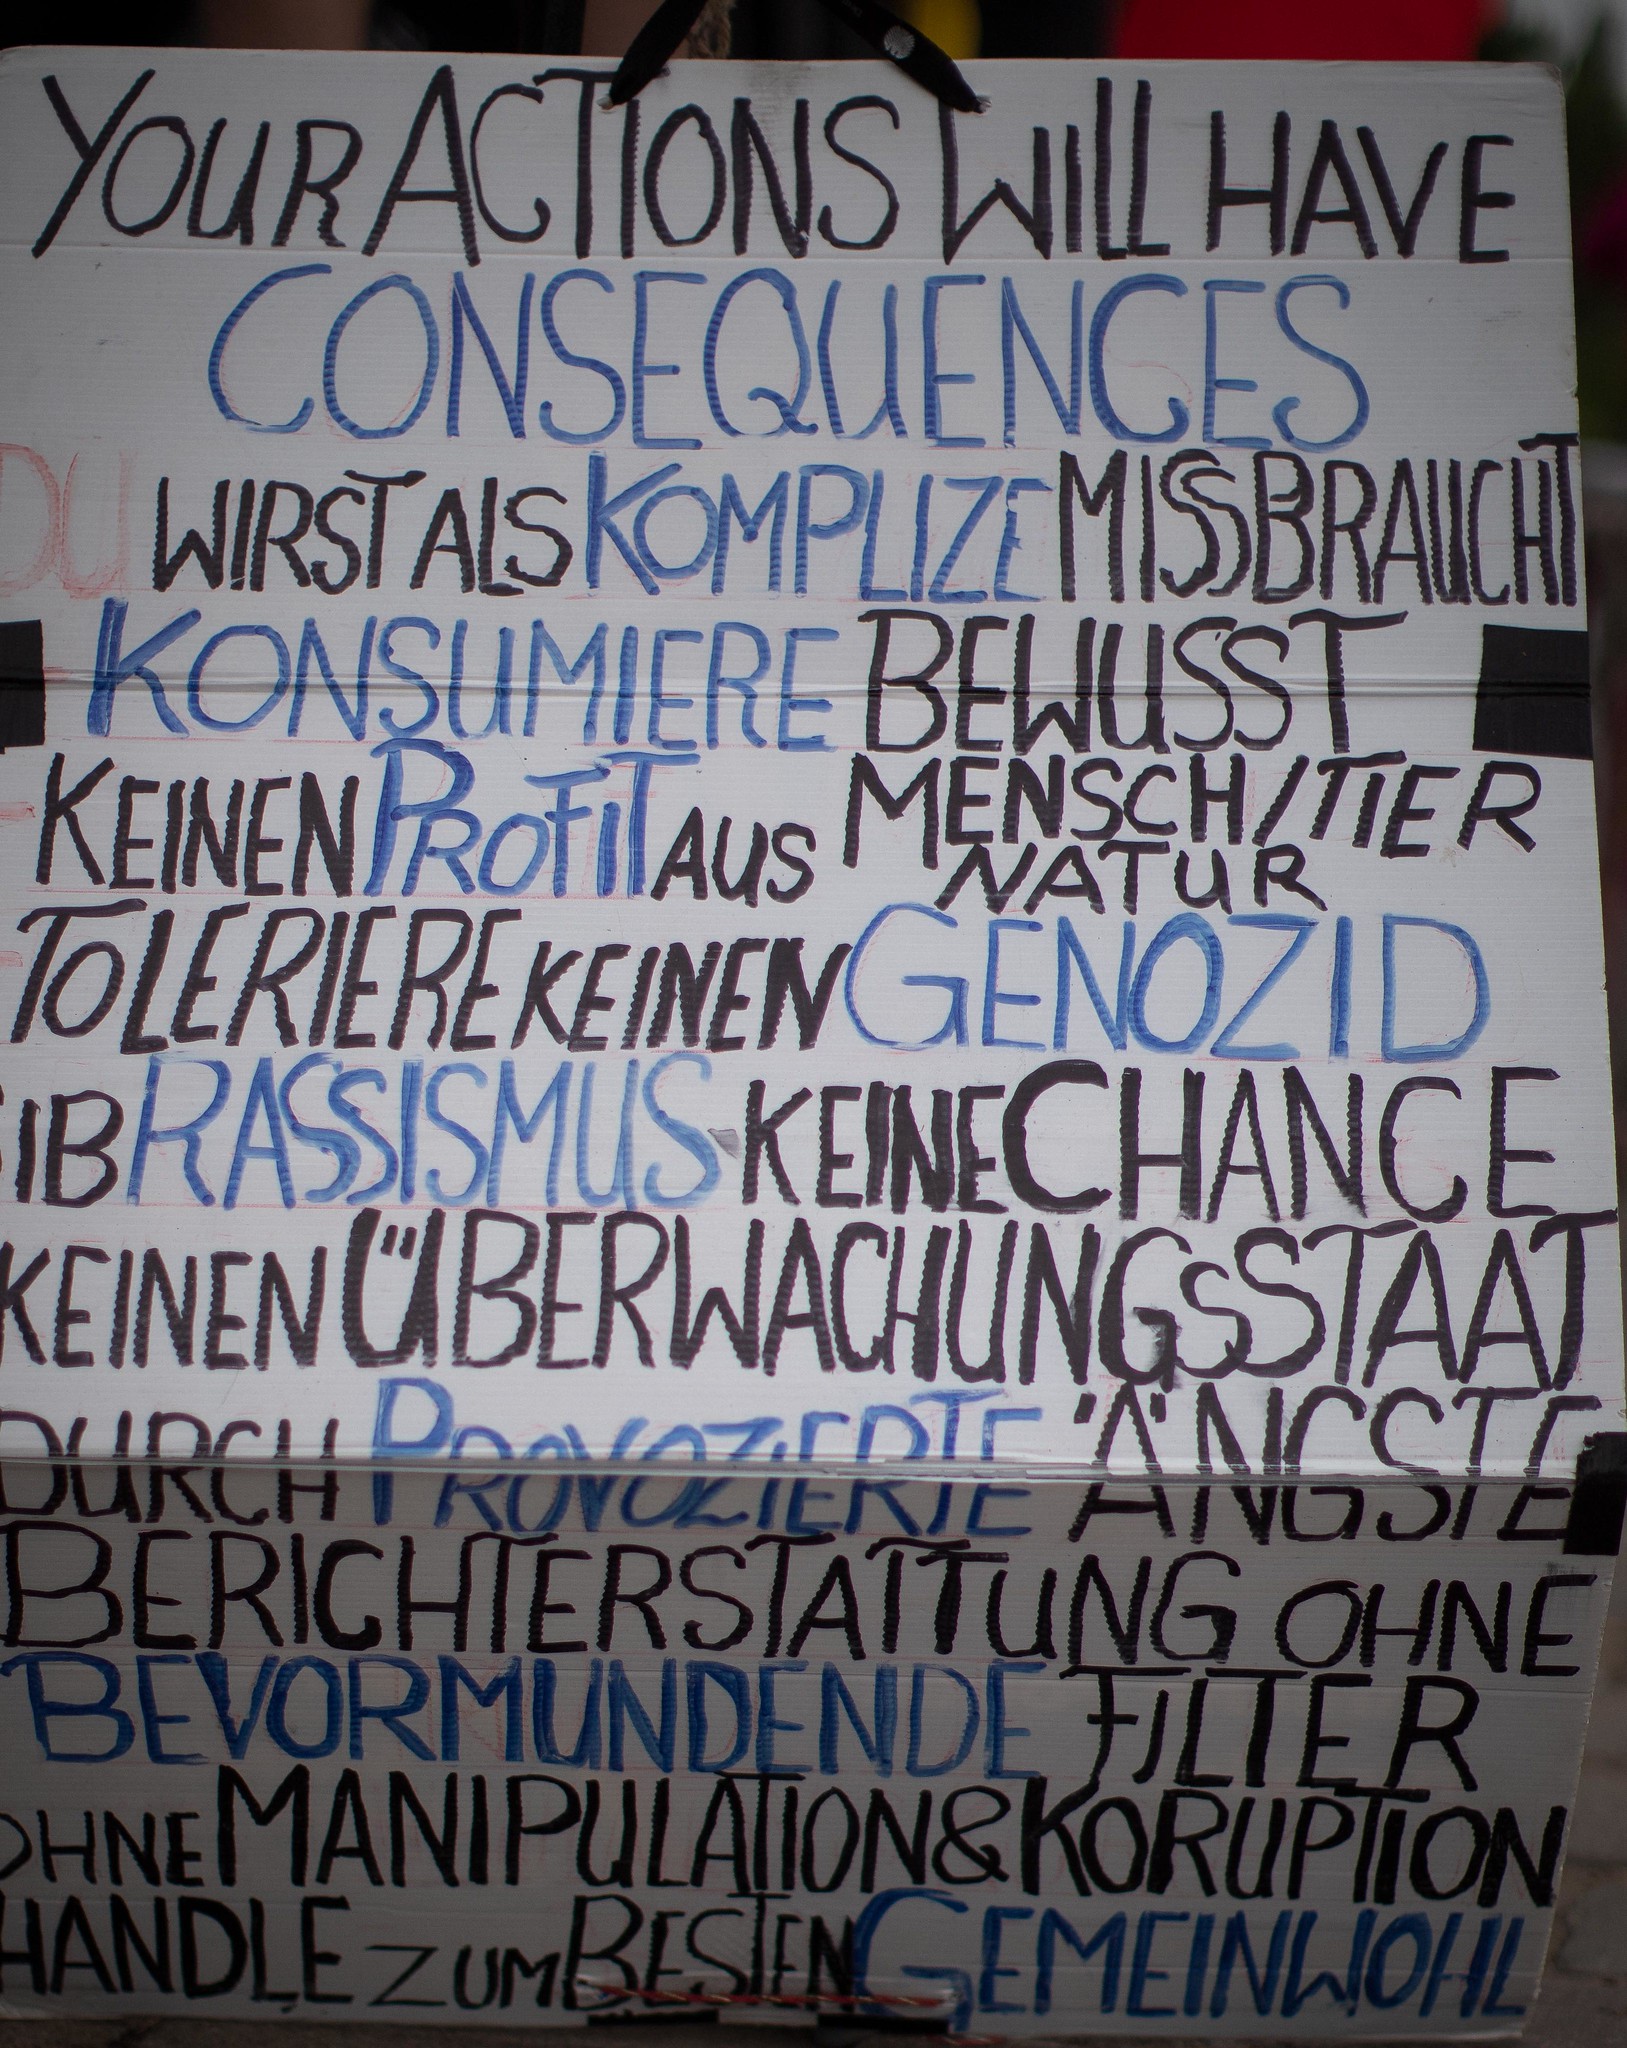 YOUR ACTIONS WILL HAVE
CONSEQUENCES
DU WIRST ALS KOMPLIZE MISSBRAUCHT
KONSUMIERE BEWUSST
KEINEN PROFIT AUS MENSCH/TIER
NATUR
TOLERIERE KEINEN GENOZID
GIB RASSISMUS KEINE CHANCE
KEINEN ÜBERWACHUNGSSTAAT
DURCH PROVOZIERTE "ÄNGSTE
BERICHTERSTATTUNG OHNE
BEVORMUNDENDE FILTER
OHNE MANIPULATION & KORUPTION
HANDLE ZUM BESTEN GEMEINWOHL